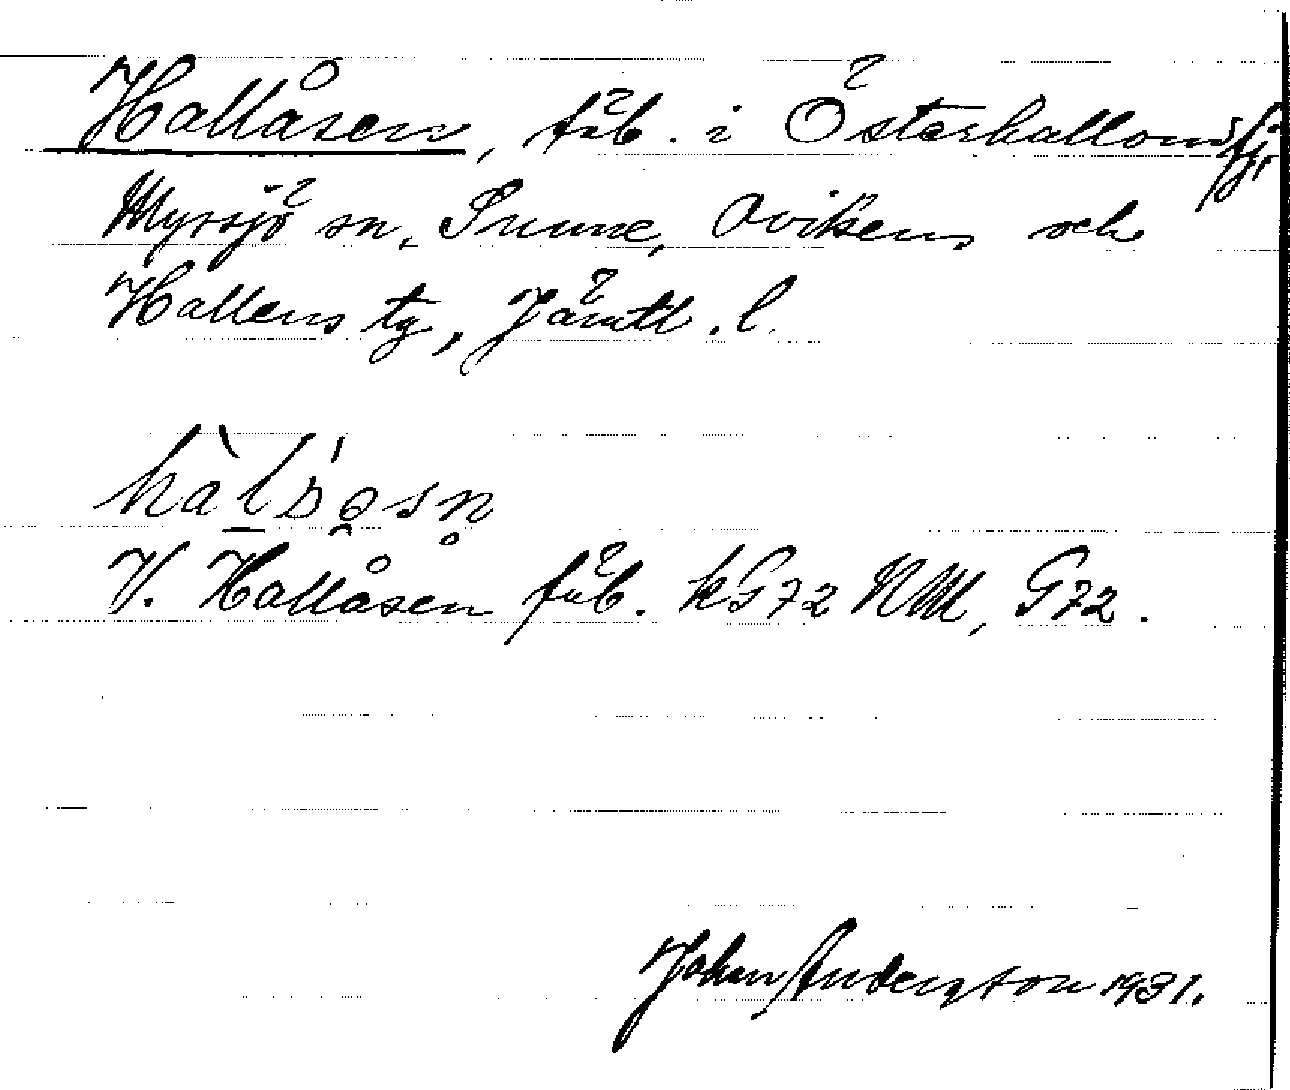 Hallåsen, fäb. i Österhallens fj.
Myssjö sn, Sunne, Ovikens och
Hallens tg, Jämtl. l.
V. Hallåsen fäb. kG72 NM, G72.
Johan Anderzson 1931.